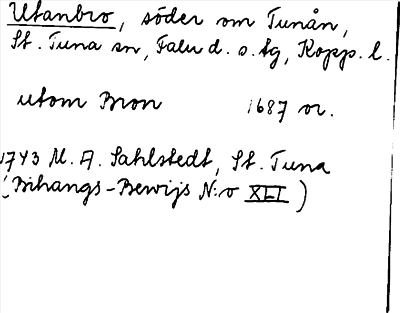 Utanbro, söder om Tunån,
St. Tuna sn, Falu d. s. tg, Kopp. l.
utom Bron 1687 or.
1743 M. A. Sahlstedt, St. Tuna
(Bihangs-Bewijs N:o XLI)